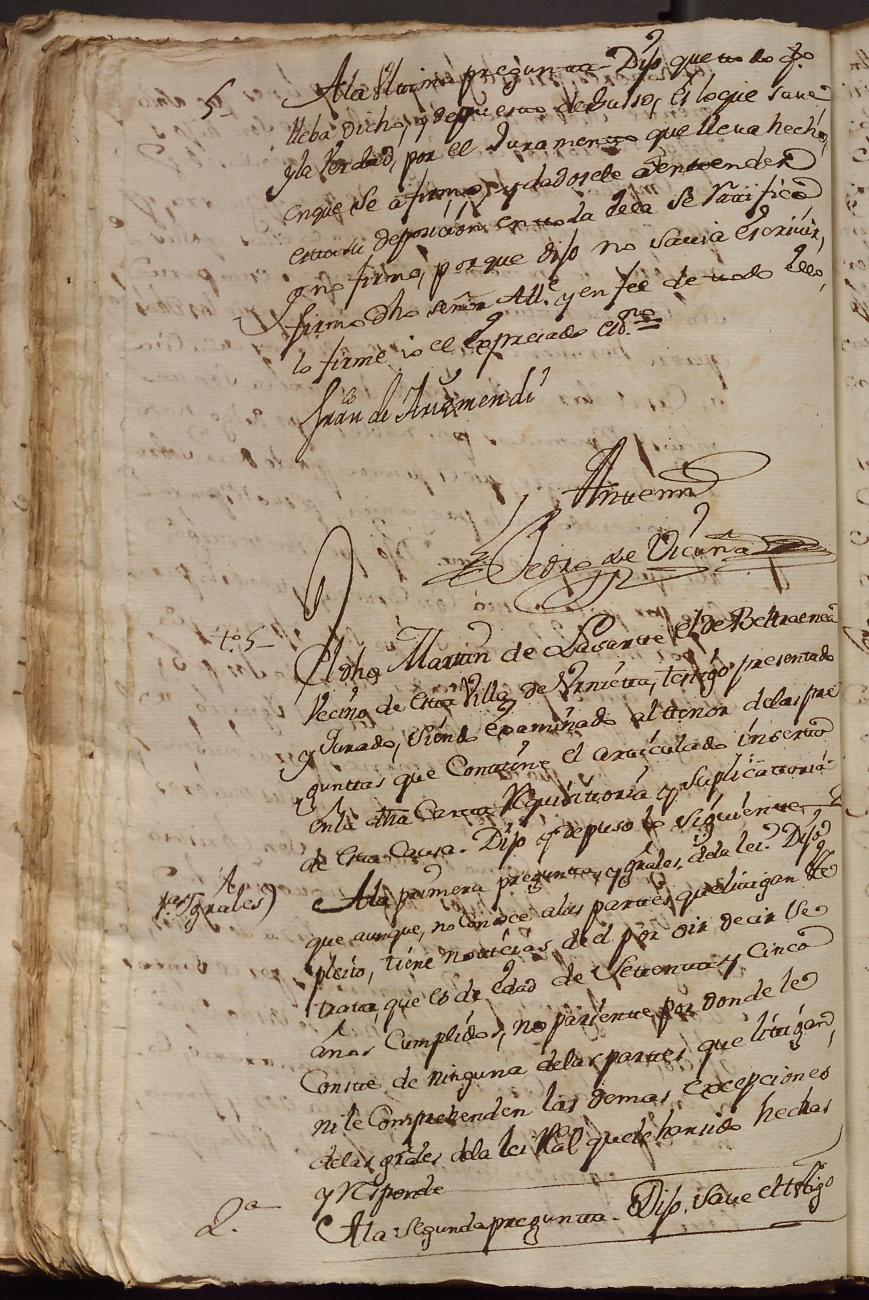 5.. Ala Vltima pregunta Dijo que todo qto
lleba dicho, y depuesto de Susso, es lo que save
y la Verdad, por el Juramento que lleva hecho,
en que se afirmo, y dadosele a entender
esta su deposicion en toda ella se Ratifico
y no firmo, porque dijo no savia escrivir,
firmo dho señor Alle. y en fee de todo ello,
lo firme io el expresado essno
Franco de Aizmendi
Antemi
Pedro de Vicuña
to. 5 El dho Martin de Lasarte el de Beltraenea
Vecino de esta Villa de Vrnieta, testigo presentado
y Jurado, siendo examinado al tenor de las pre
guntas que Contiene el articulado inserto
en la dha Carta Requisitoria y Suplicatoria
de esta Causa. Dijo y depuso lo siguiente
A la primera pregunta, y grales, de la lei. Dijo
que aunque, no Conoce a las partes que litigan este
pleito, tiene noticias de el por oir decir se
trata, que es de edad de Setenta y Cinco
años Cumplidos, no pariente por donde le
Conste de ninguna de las partes que litigan,
ni le Comprehenden las demas excepciones
de las grales de la lei Rl que le han sido hechas
y Responde
2.a A la segunda pregunta. Dijo, save el testigo